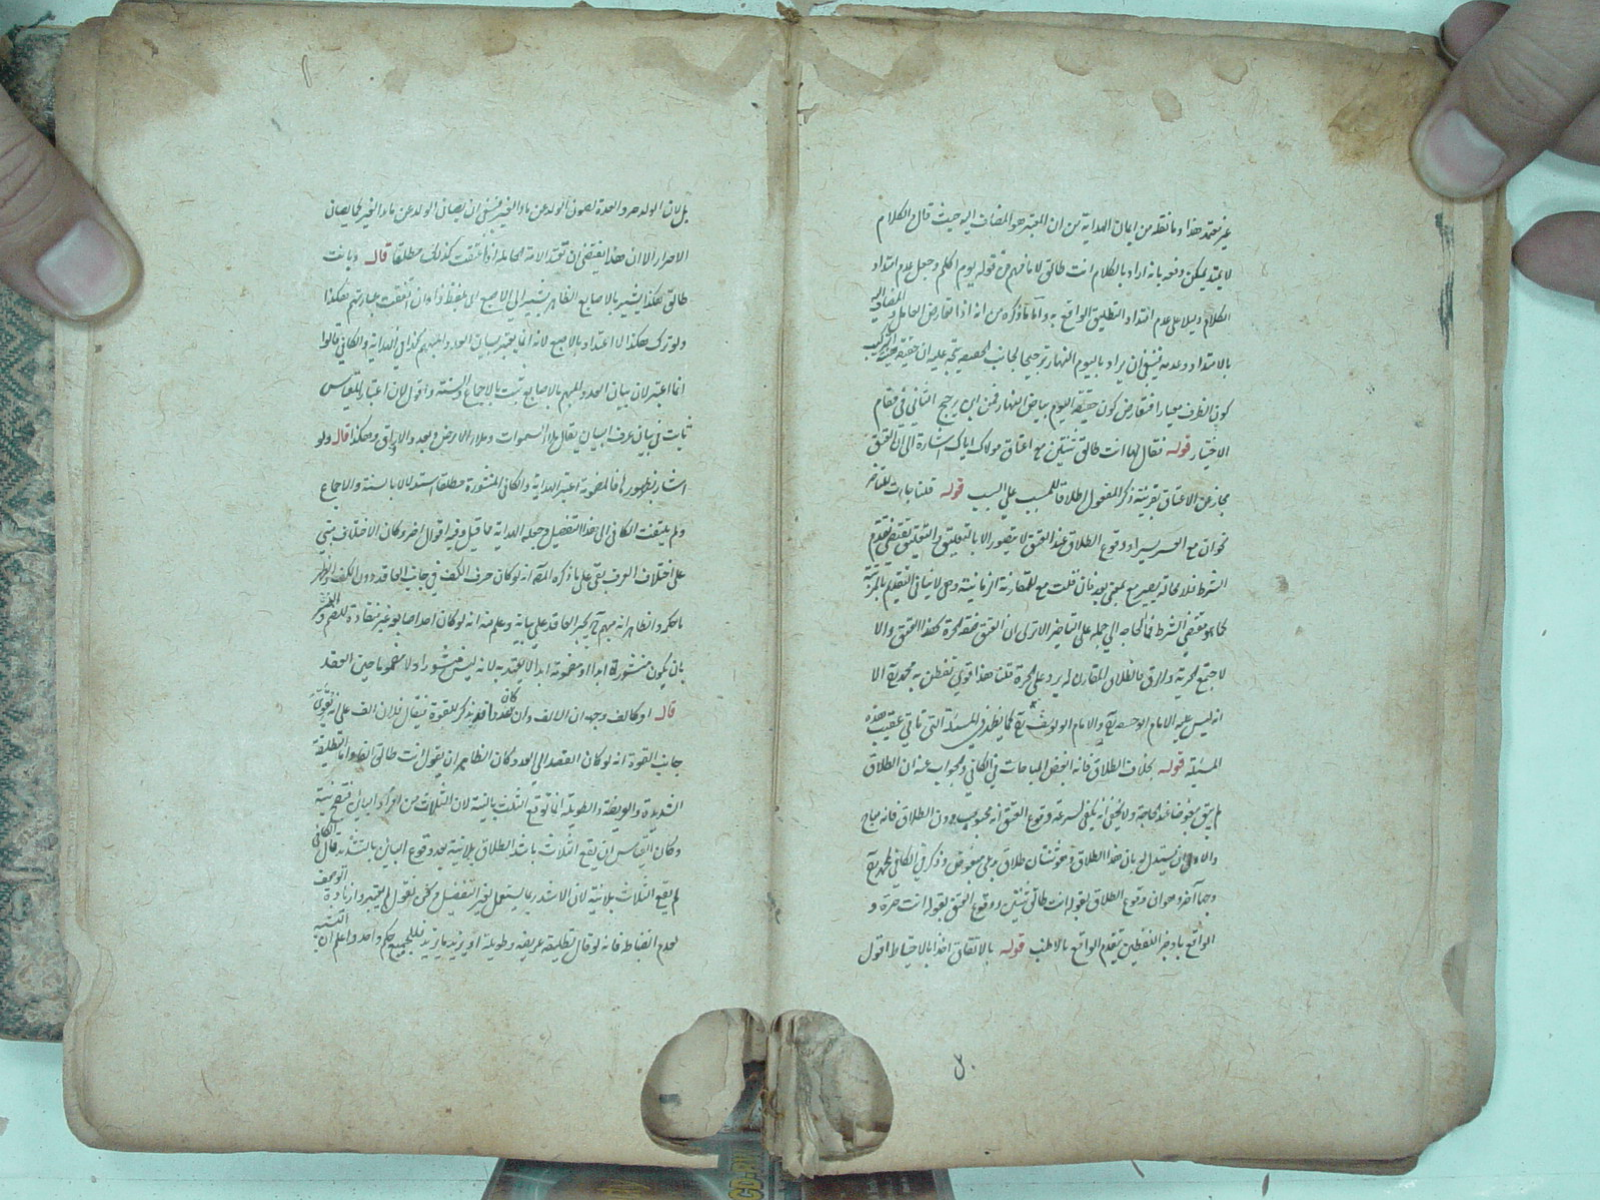 غير معتمد هذا وما نقله من ايمان الهداية من ان المعتبر هو المضاف اليه حيث قال الكلام
لا يمتد يمكن دفعه بانه اراد بالكلام انت طالق لا ما فهم من قوله يوم اكلم وجعل عدم امتداد
الكلام دليلا على عدم امتداد التطليق الواقع به واما ما ذكره من انه اذا تعارض العامل والمضاف اليه
بالامتداد وعدمه فينبغي ان يراد باليوم النهار ترجيحا لجانب الحقيقة يتجه عليه ان حقيقة هذا التركيب
كون الظرف معيارا فتعارض كون حقيقة اليوم بياض النهار فمن اين يرجح الثاني في مقام
الاختيار قوله فقال لها انت طالق ثنتين مع اعتاق مولاك اياك اشارة الى ان العتق
مجاز عن الاعتاق بقرينة ذكر المفعول اطلاقا للمسبب على السبب قوله قلنا جاءت للتاخر
نحو ان مع العسر يسرا ووقوع الطلاق عند العتق لا يتصور الا بالتعليق والتعليق يقتضي تقدم
الشرط فلا محالة يصير مع بمعنى بعد فان قلت مع للمقارنة الزمانية وهي لا ينافي التقديم بالمرتبة
كما هو مقتضى الشرط فما الحاجة الى حمله على التاخر الا ترى ان العتق صفة لحرة كهذا العتق والا
لاجتمع الحرية والرق بالطلاق المقارن له يرد على الحرة قلنا هذا قوي تفطن به محمد الا
انه ليس عليه الامام ابو حنيفة والامام ابو يوسف كما يظهر في المسئلة التي تاتي عقيب هذه
المسئلة قوله بخلاف الطلاق فانه ابغض المباحات في الكافي والجواب عنه ان الطلاق
لم يبق مبغوضا عند الحاجة ولا يخفى انه يكفي لسرعة وقوع العتق انه محبوب دون الطلاق فانه مباح
والاولى ان يستدل به بان هذا الطلاق وهو ثنتان طلاق بدعي مبغوض وذكر في الكافي لمحمد
وجها آخر وهو ان وقوع الطلاق بقوله انت طالق ثنتين ووقوع العتق بقوله انت حرة و
الواقع باوجز اللفظين يتقدم الواقع بالاطنب قوله بالاتفاق اخذا بالاحتياط اقول
بل لان الولد هو والعدة لصون الولد عن ماء الغير فينبغي ان يصان الولد عن ماء الغير كما يصان
الاحرار الا ان هذا يقتضي ان تعتد الامة الحاملة اذا اعتقت كذلك مطلقا قال وبانت
طالق هكذا يشير بالاصابع الظاهر يشير الى الاصبع اي بلفظ ذا وان اتفقت عبارتهم هكذا
ولو ترك هكذا لا اعتداد بالاصبع لانه انما يعتبر بيان العدد المبهم كذا في الهداية والكافي قالوا
انما اعتبر لان بيان العدد المبهم بالاصابع ثبت بالاجماع والسنة واقول لان اعتبار القياس
ثابت في بيان عرف البيان يقال ملاء السموات وملاء الارض وبعدد الاوراق وهكذا قال ولو
اشار بظهورها فالمضمومة اعتبر الهداية والكافي المنشورة مطلقا استدلالا بالسنة والاجماع
ولم يلتفت الكافي الى هذا التفصيل وجعله الهداية مما قيل وفيه اقوال اخر وكان الاختلاف يبتني
على اختلاف العرف بقي على ما ذكره المص انه لو كان حرف الكف في جانب العاقد دون الكف والظهر
ما حكمه والظاهر انه مبهم يجبر العاقد على بيانه وعلم منه انه لو كان احد اصابعه غير منقادة للضم والنشر
بان يكون منشورة ابدا او مضمومة ابدا لا يعتد به لانه ليس منشورا ولا مضموما حين العقد
قال او كالف وجهه ان الالف وان كان عددا فقد يذكر للقوة فيقال فلان الف على انه يقوي
جانب القوة انه لو كان القصد الى العدد كان الظاهر ان يقول انت طالق الفا واما تطليقة
الشديدة والعريضة والطويلة انما توقع الثلث بالنية لان الثلاث من افراد البائن فتصح نية
وكان القياس ان يقع الثلاث باشد الطلاق بلا نية بعد وقوع البائن بالتشديد قال في الكافي
لم يقع الثلاث بلا نية لان الاشد ربما يستعمل لغير التفضيل ونحن نقول لم يعتبروا زيادة الوصف
لعدم انضباط فانه لو قال تطليقة عريضة وطويلة او يزيد ما يزيد فللجميع حكم واحد واعلم ان التشبيه